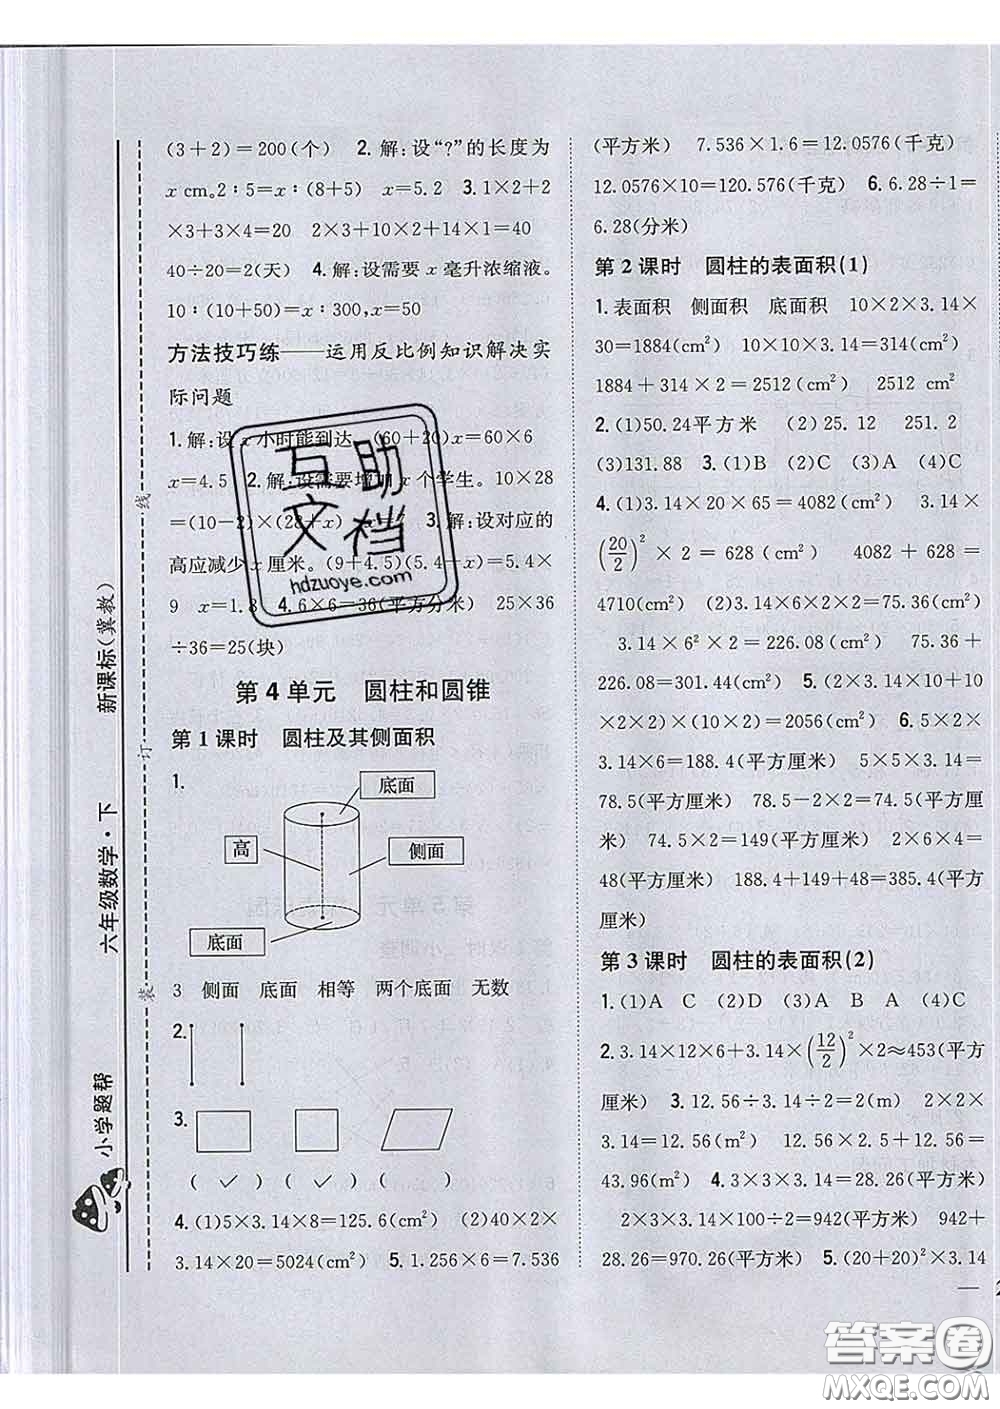 (3+2)=200(个)　2.解:设“?”的长度为
x cm。2∶5=x∶(8+5)　x=5.2　3.1×2+2
×3+3×4=20　2×3+10+1×10+14=40
40÷20=2(天)　4.解:设需要 x 毫升浓缩液。
10∶(10+50)=x∶300,x=50
方法技巧练——运用反比例知识解决实
际问题
1.解:设 x 小时能到达。(60+20)x=60×6
x=4.5　2.解:设需要增加 x 个学生。10×28
=(10-2)×(28+x)　3.解:设对应的
高应减少 x 厘米。(9+4.5)(5.4-x)=5.4×
9　x=1.8　4.6×6=36(平方分米)　25×36
÷36=25(块)
第 4 单元　圆柱和圆锥
第 1 课时　圆柱及其侧面积
1.
底面
高
侧面
底面
3　侧面　底面　相等　两个底面　无数
2.
3.
(　✓　)　(　✓　)　(　　)
4.(1)5×3.14×8=125.6(cm²)　(2)40×2×
3.14×20=5024(cm²)　5.1.256×6=7.536
(平方米)　7.536×1.6=12.0576(千克)
12.0576×10=120.576(千克)　6.6.28÷1=
6.28(分米)
第 2 课时　圆柱的表面积(1)
1.表面积　侧面积　底面积　10×2×3.14×
30=1884(cm²)　10×10×3.14=314(cm²)
1884+314×2=2512(cm²)　2512 cm²
2.(1)50.24平方米　(2)25.12　251.2
(3)131.88　3.(1)B　(2)C　(3)A　(4)C
4.(1)3.14×20×65=4082(cm²)　3.14×
(20/2)²×2=628(cm²)　4082+628=
4710(cm²)　(2)3.14×6×2×2=75.36(cm²)
3.14×6²×2=226.08(cm²)　75.36+
226.08=301.44(cm²)　5.(2×4×10+10
×2×2)×(10×2)=2056(cm²)　6.5×2×
3.14×6=188.4(平方厘米)　5×5×3.14=
78.5(平方厘米)　78.5-2×2=74.5(平方厘
米)　74.5×2=149(平方厘米)　2×6×4=
48(平方厘米)　188.4+149+48=385.4(平方
厘米)
第 3 课时　圆柱的表面积(2)
1.(1)A　C　(2)D　(3)A　B　A　(4)C
2.3.14×12×6+3.14×(12/2)²×2≈453(平方
厘米)　3.12.56÷3.14÷2=2(m)　2×2×
3.14=12.56(m²)　12.56×2.5+12.56=
43.96(m²)　4.3×3×3.14=28.26(平方米)
2×3×3.14×100÷2=942(平方米)　942+
28.26=970.26(平方米)　5.(20+20)²×3.14
新课标(冀教)
六年级数学·下
小学题帮
装
订
线
互助
文档
hdzuoye.com
答案圈
MXQE.COM